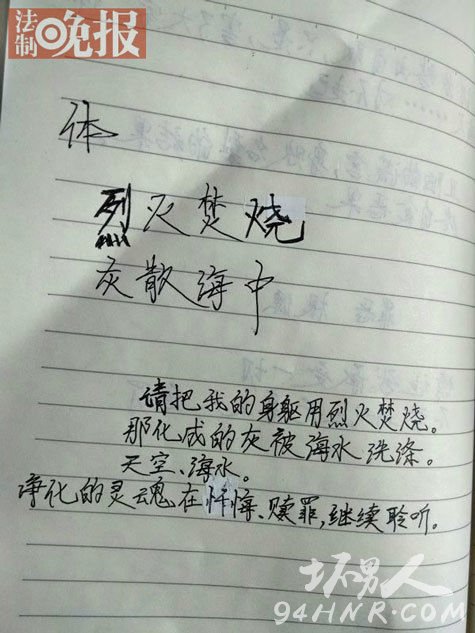 法制晚报
体
烈火焚烧
灰散海中
请把我的身躯用烈火焚烧。
那化成的灰被海水洗涤。
天空、海水。
净化的灵魂在忏悔、赎罪,继续聆听。
坏男人
94HNR.COM